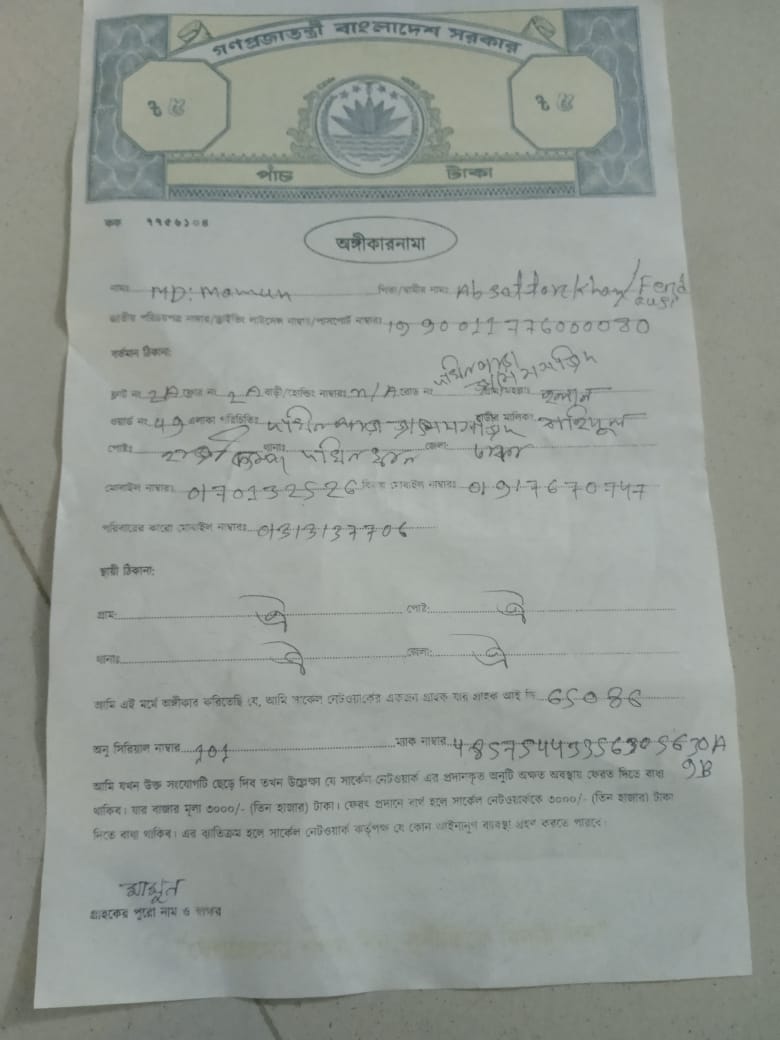 গণপ্রজাতন্ত্রী বাংলাদেশ সরকার
৳ ৫ ৳ ৫
পাঁচ টাকা
কক ৭৭৫৬১০৪
অঙ্গীকারনামা
নামঃ MD: Mamun পিতা/স্বামীর নামঃ Ab sattor khan/Ferdausi
জাতীয় পরিচয়পত্র নাম্বার/ড্রাইভিং লাইসেন্স নাম্বার/পাসপোর্ট নাম্বারঃ 1990011776000080
বর্তমান ঠিকানা:
ফ্ল্যাট নং 2A ফ্লোর নং 2A বাড়ী/হোল্ডিং নাম্বারঃ n/A রোড নং দক্ষিনপাড়া জামে মসজিদ
ওয়ার্ড নং 49 এলাকা পরিচিতিঃ দক্ষিনপাড়া জামে মসজিদ বাড়ীর মালিকঃ
পোষ্টঃ থানাঃ দক্ষিনখান জেলাঃ ঢাকা
মোবাইল নাম্বারঃ 0170132526 বিকল্প মোবাইল নাম্বারঃ 01917670747
পরিবারের কারো মোবাইল নাম্বারঃ 013137706
স্থায়ী ঠিকানা:
গ্রামঃ ঐ পোষ্টঃ ঐ
থানাঃ ঐ জেলাঃ ঐ
আমি এই মর্মে অঙ্গীকার করিতেছি যে, আমি সার্কেল নেটওয়ার্কের একজন গ্রাহক যার গ্রাহক আই ডি 65086
অনু সিরিয়াল নাম্বার 101 ম্যাক নাম্বার 48575443356305630A
9B
আমি যখন উক্ত সংযোগটি ছেড়ে দিব তখন উল্লেক্ষ্য যে সার্কেল নেটওয়ার্ক এর প্রদানকৃত অনুটি অক্ষত অবস্থায় ফেরত দিতে বাধ্য
থাকিব। যার বাজার মূল্য ৩০০০/- (তিন হাজার) টাকা। ফেরৎ প্রদানে ব্যর্থ হলে সার্কেল নেটওয়ার্ককে ৩০০০/- (তিন হাজার) টাকা
দিতে বাধ্য থাকিব। এর ব্যতিক্রম হলে সার্কেল নেটওয়ার্ক কর্তৃপক্ষ যে কোন আইনানুগ ব্যবস্থা গ্রহন করতে পারবে।
মামুন
গ্রাহকের পুরো নাম ও স্বাক্ষর